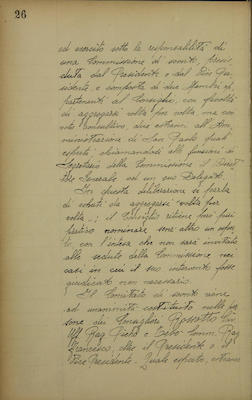 26
ed esercito sotto le responsabilità di
una Commissione di sconti, presie-
duta dal Presidente o dal Vice Pre-
sidente e composta di due Membri ap-
partenenti al Consiglio, con facoltà
di aggregarsi volta per volta con
voto consultivo, due estranei all'Am-
ministrazione di San Paolo quali
esperti, chiamandosi alle funzioni di
Segretario della Commissione il Diret-
tore Generale od un suo Delegato.
In questa deliberazione si parla
di esperti da aggregarsi "volta per
volta"; il Consiglio ritiene più
pratico nominare senz'altro un esper-
to, con l'intesa che non sarà invitato
alle sedute della Commissione nei
casi in cui il suo intervento fosse
giudicato non necessario.
Il Comitato di sconti viene
ad unanimità costituito nelle per-
sone dei Consiglieri Rossotto
Uff. Rag. Piero e Comm. Rag.
Francesco, oltre il Presidente o il
Vice Presidente. Quale esperto, estraneo